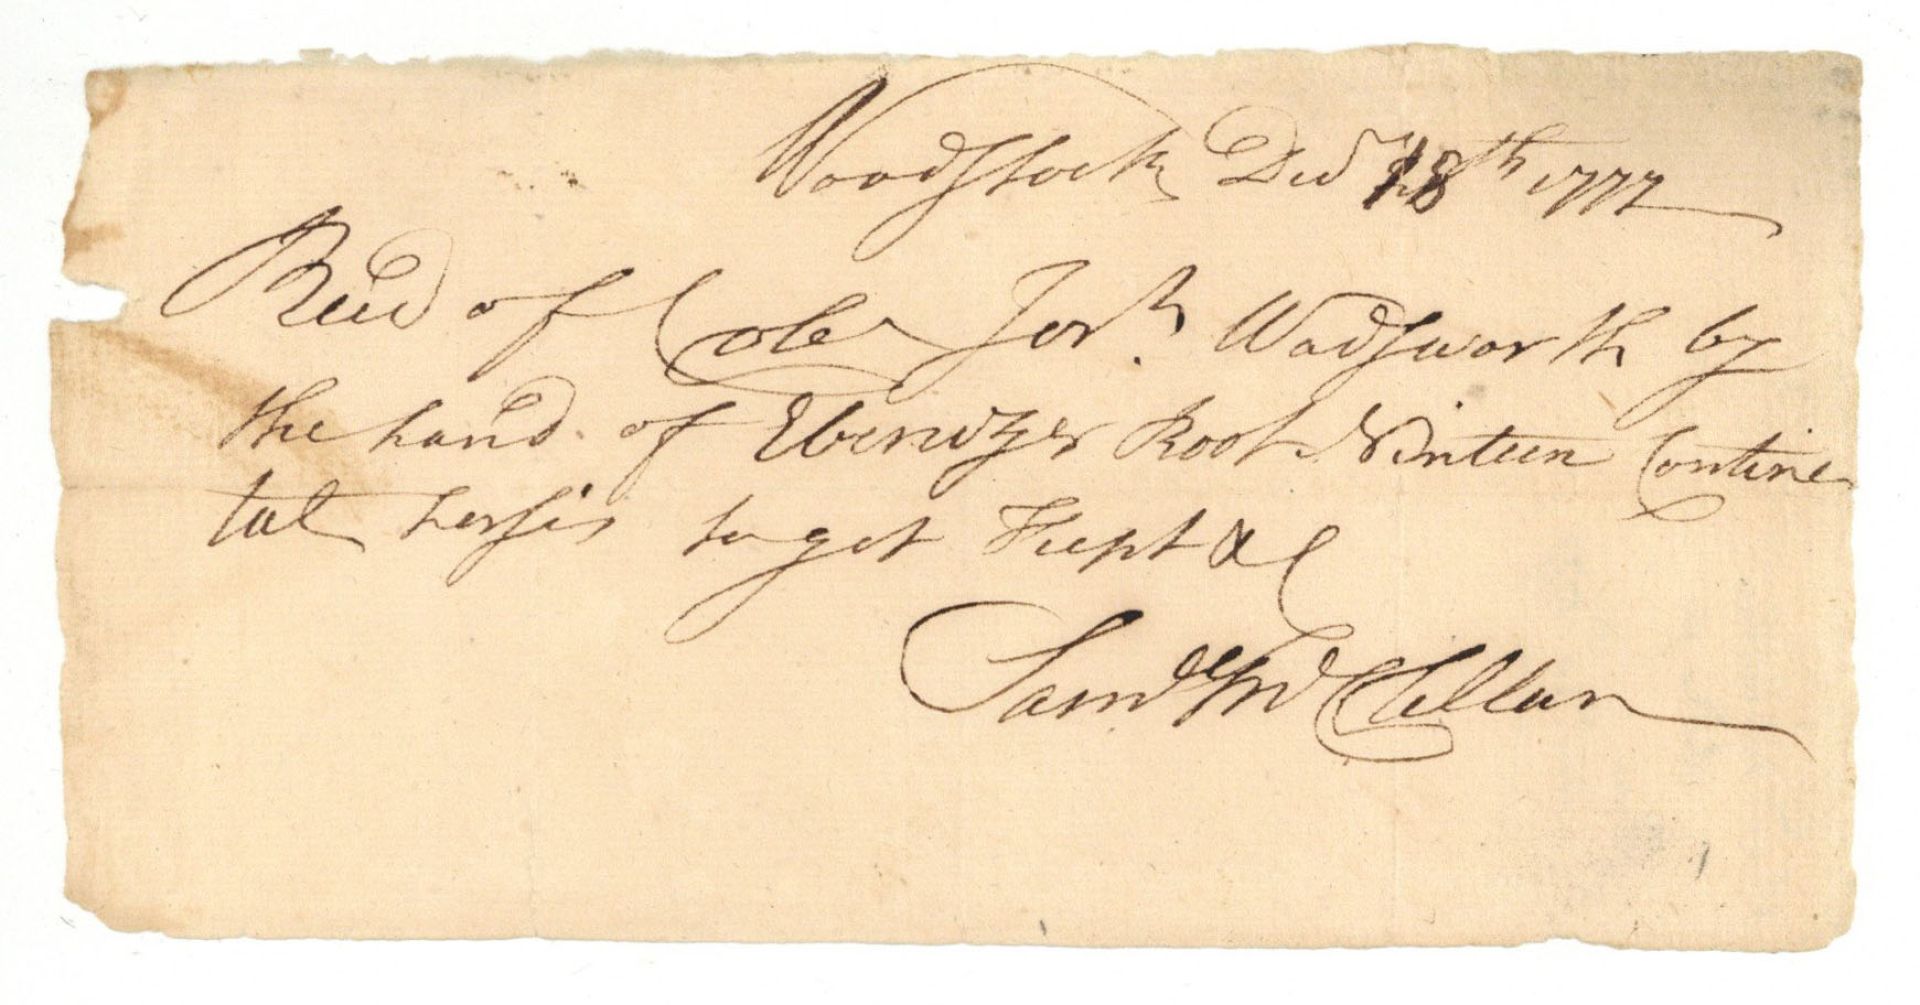 Woodstock Decr 18th 1777
Recd of Colo Jerh Wadsworth by
the hand of Ebenezer Root Ninteen Contine
tal horsis to get Kept &C
Samll McClellan